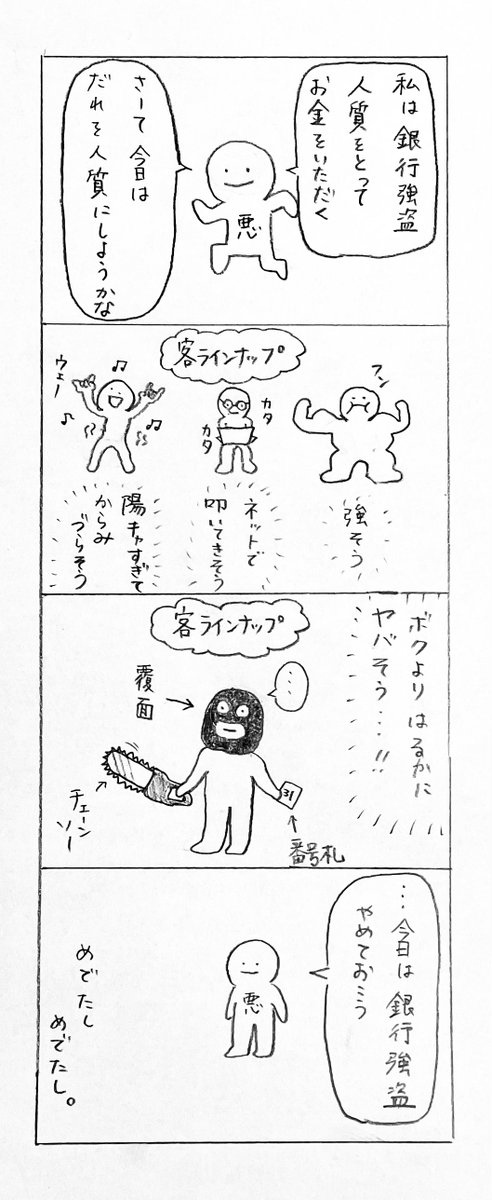 私は銀行強盗
人質をとって
お金をいただく
さーて今日は
だれを人質にしようかな
悪
客ラインナップ
フン
強そう
カタ
カタ
ネットで
叩いてきそう
ウェー
陽キャすぎて
からみ
づらそう
ボクよりはるかに
ヤバそう…!!
客ラインナップ
…
覆面
チェーン
ソー
31
番号札
…今日は銀行強盗
やめておこう
悪
めでたし
めでたし。